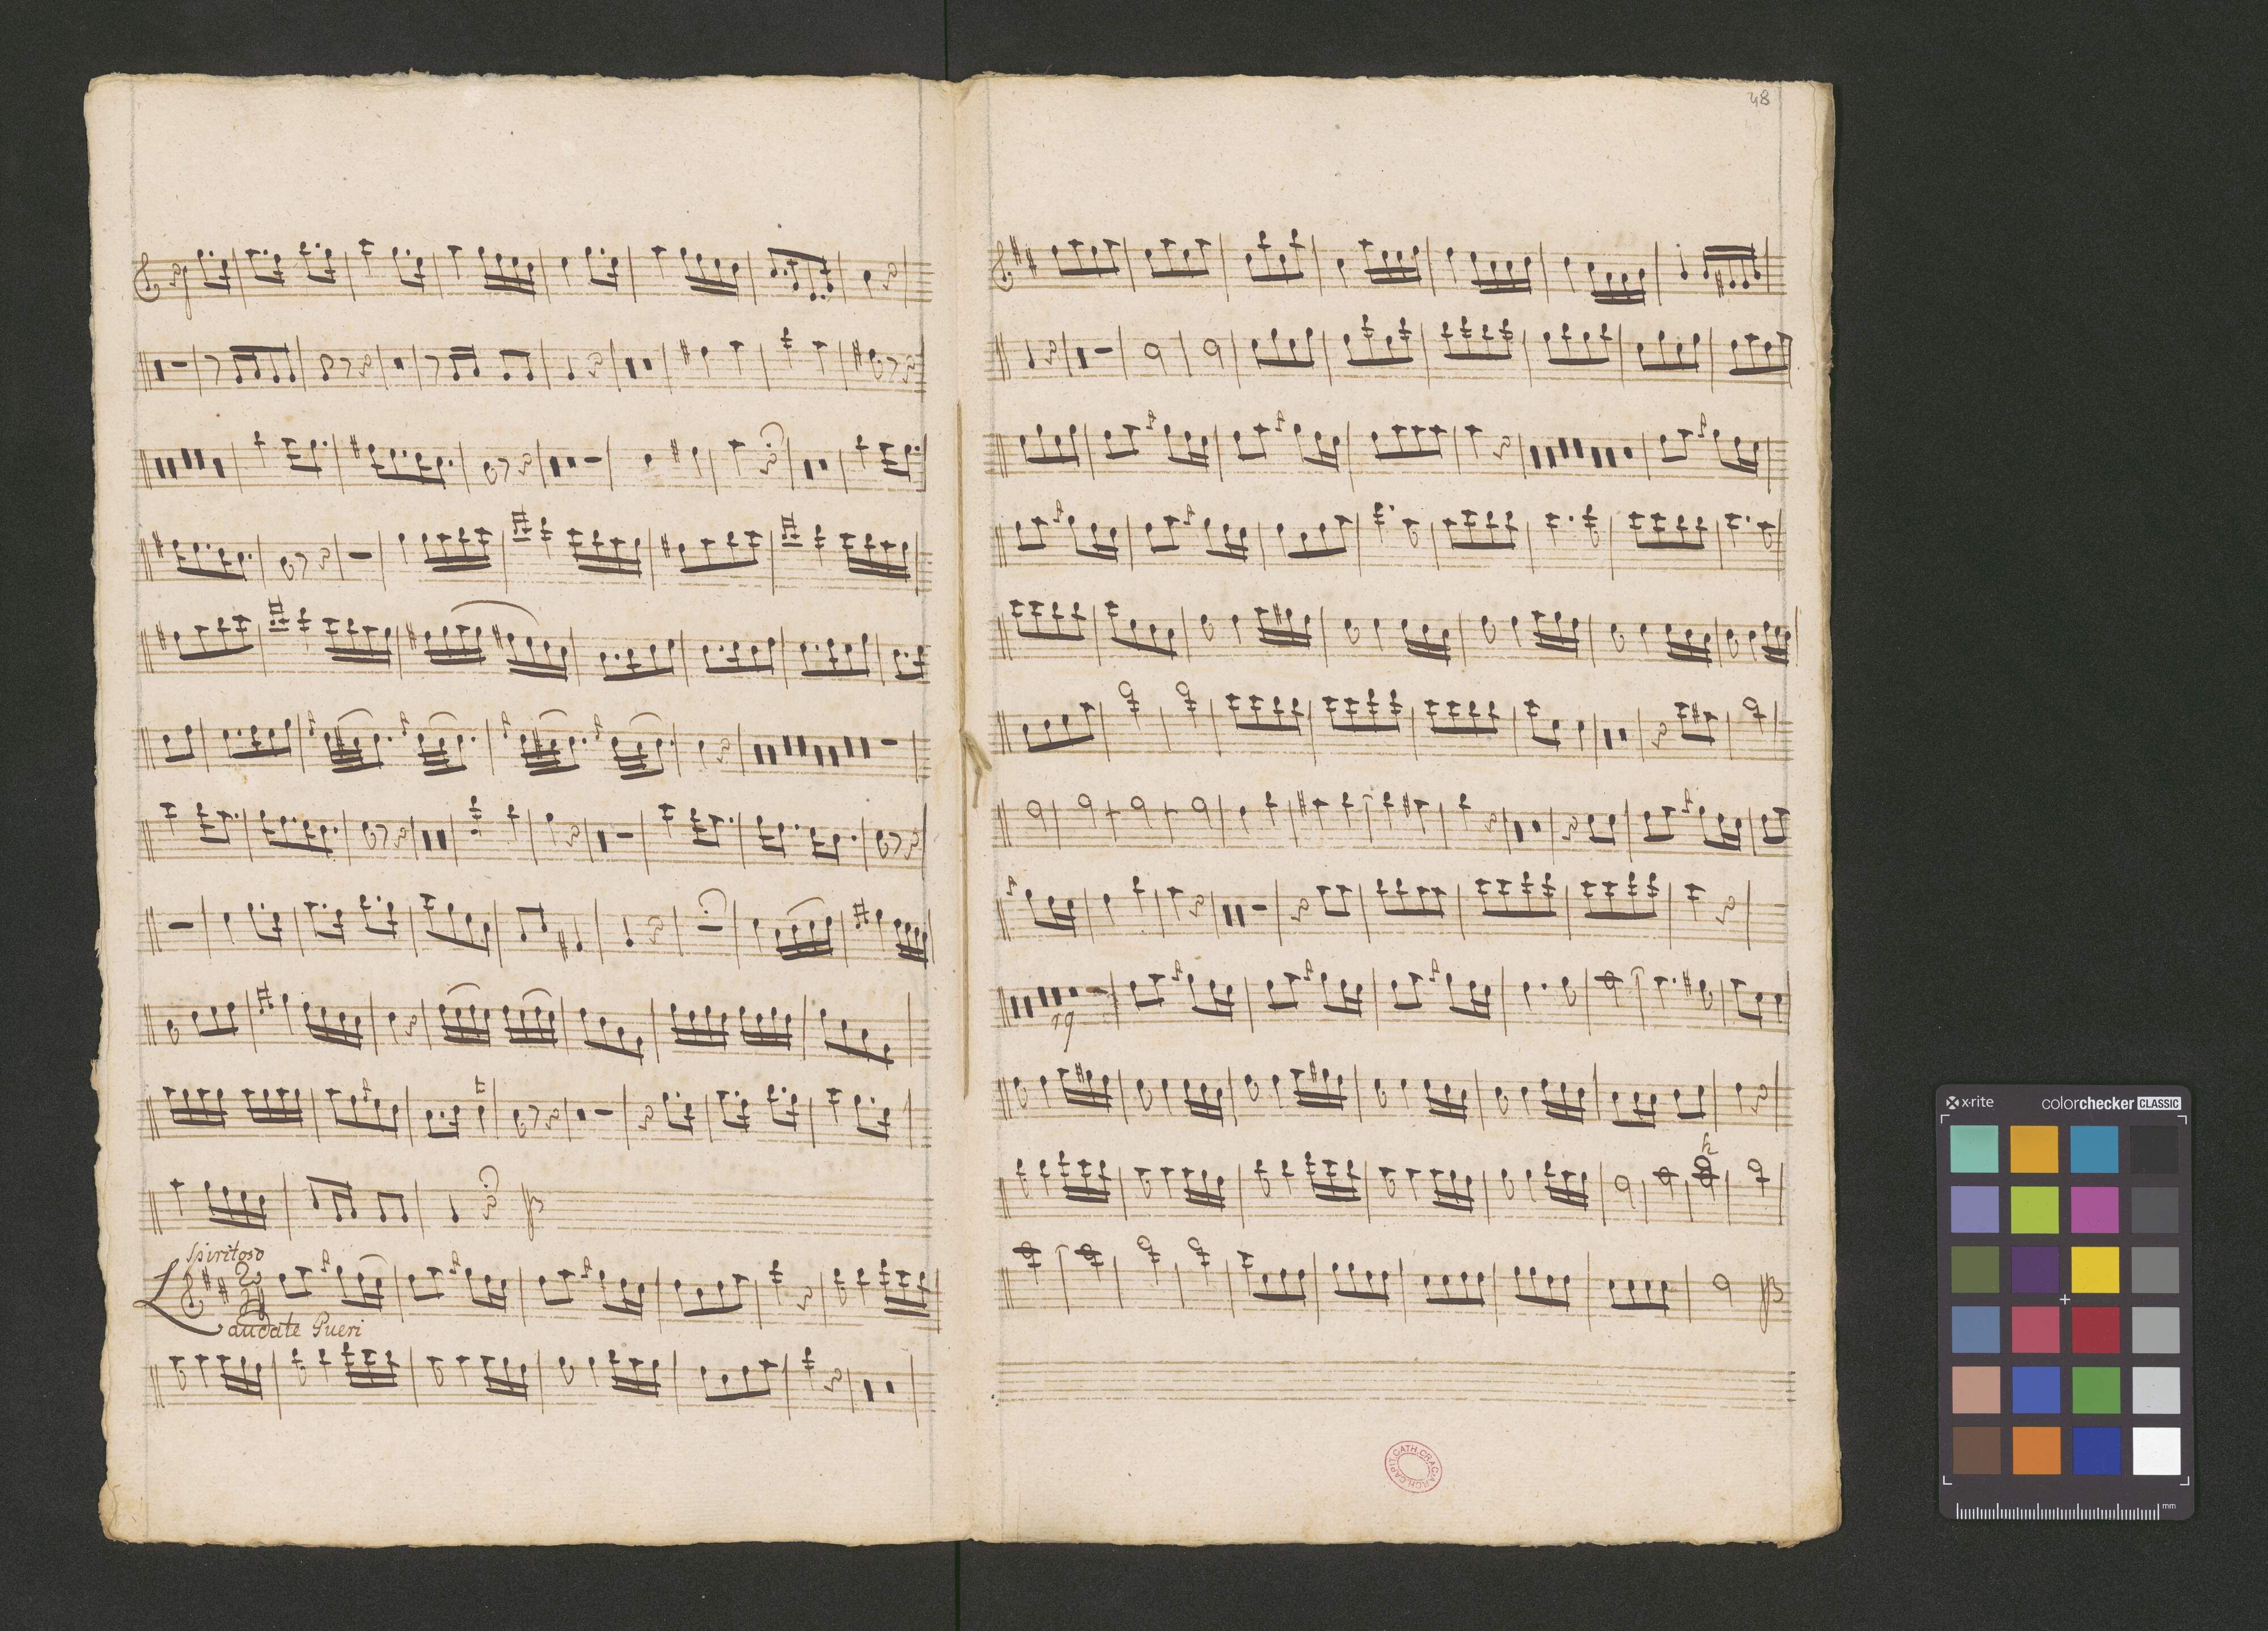 Spiritoso
Laudate Pueri
48
19
ARCH. CAPIT. CATH. CRAC.
x-rite
colorchecker CLASSIC
mm